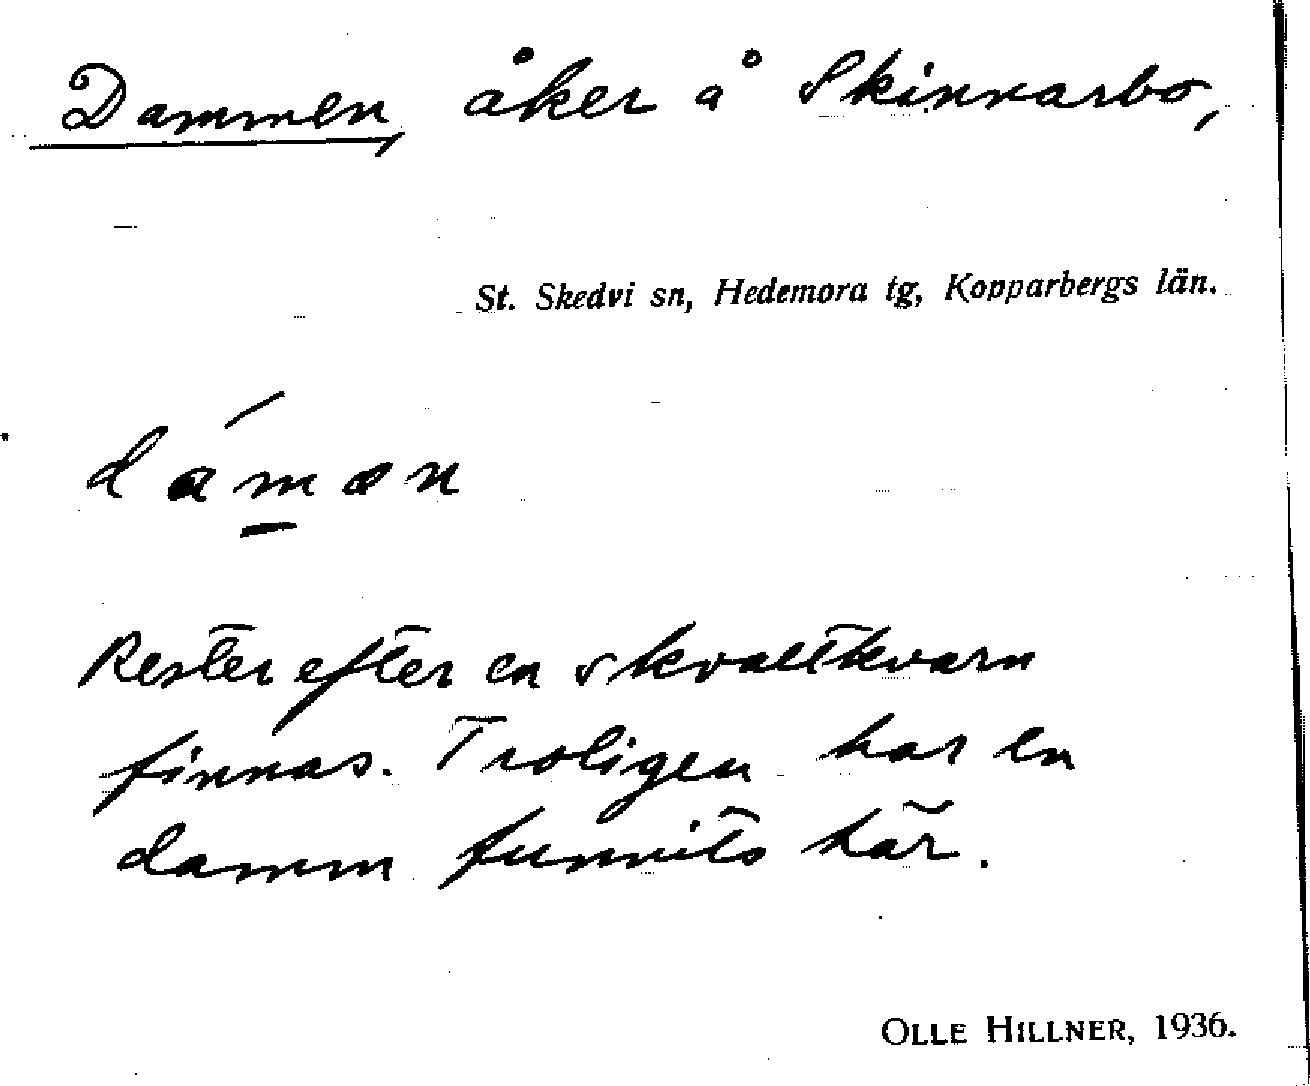 Dammen, åker å Skinnarbo,
St. Skedvi sn, Hedemora tg, Kopparbergs län.
Rester efter en skvaltkvarn
finnas. Troligen har en
damm funnits här.
OLLE HILLNER, 1936.